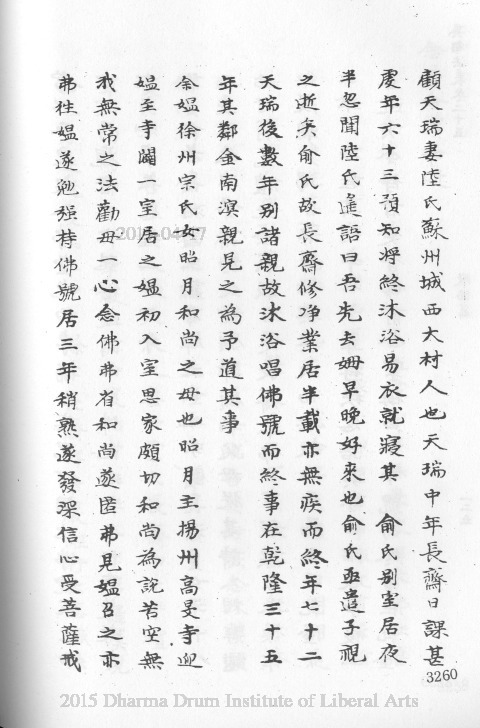 顧天瑞妻陸氏蘇州城西大村人也天瑞中年長齋日課甚
虔年六十三預知將終沐浴易衣就寢其 俞氏別室居夜
半忽聞陸氏遙語曰吾先去姆早晚好來也俞氏亟遣子視
之逝矣俞氏故長齋修淨業居半載亦無疾而終年七十二
天瑞後數年別諸親故沐浴唱佛號而終事在乾隆三十五
年其鄰金南溟親見之為予道其事
余媼徐州宗氏女昭月和尚之母也昭月主揚州高旻寺迎
媼至寺闢一室居之媼初入室思家頗切和尚為說苦空無
我無常之法勸母一心念佛弗省和尚遂匿弗見媼召之亦
弗往媼遂勉強持佛號居三年稍熟遂發深信心受菩薩戒
3260
2015 Dharma Drum Institute of Liberal Arts